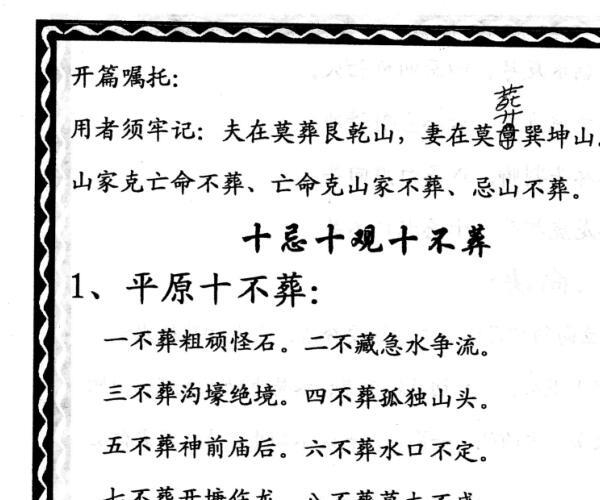 开篇嘱托：
用者须牢记：夫在莫葬艮乾山，妻在莫葬巽坤山。
山家克亡命不葬、亡命克山家不葬、忌山不葬。
十忌十观十不葬
1、平原十不葬：
一不葬粗顽怪石。二不藏急水争流。
三不葬沟壕绝境。四不葬孤独山头。
五不葬神前庙后。六不葬水口不定。
七不葬开塘作龙。八不葬草木不盛。